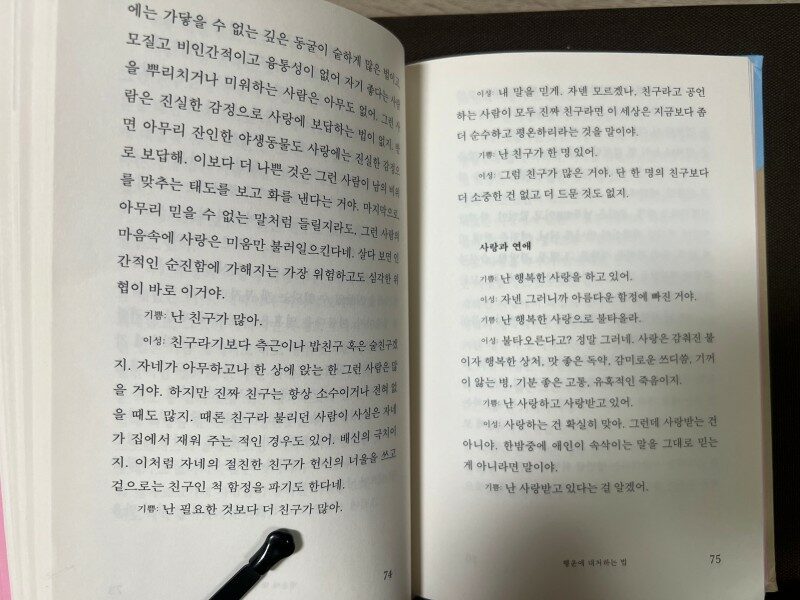 에는 가닿을 수 없는 깊은 동굴이 숱하게 많은 법이고
모질고 비인간적이고 융통성이 없어 자기 좋다는 사람
을 뿌리치거나 미워하는 사람은 아무도 없어. 그런 사
람은 진실한 감정으로 사랑에 보답하는 법이 없지. 반
면 아무리 잔인한 야생동물도 사랑에는 진실한 감정으
로 보답해. 이보다 더 나쁜 것은 그런 사람이 남의 비위
를 맞추는 태도를 보고 화를 낸다는 거야. 마지막으로,
아무리 믿을 수 없는 말처럼 들릴지라도, 그런 사람의
마음속에 사랑은 미움만 불러일으킨다네. 살다 보면 인
간적인 순진함에 가해지는 가장 위험하고도 심각한 위
협이 바로 이거야.
기쁨: 난 친구가 많아.
이성: 친구라기보다 측근이나 밥친구 혹은 술친구겠
지. 자네가 아무하고나 한 상에 앉는 한 그런 사람은 많
을 거야. 하지만 진짜 친구는 항상 소수이거나 전혀 없
을 때도 많지. 때론 친구라 불리던 사람이 사실은 자네
가 집에서 재워 주는 적인 경우도 있어. 배신의 극치이
지. 이처럼 자네의 절친한 친구가 헌신의 너울을 쓰고
겉으로는 친구인 척 함정을 파기도 한다네.
기쁨: 난 필요한 것보다 더 친구가 많아.
74
이성: 내 말을 믿게. 자넨 모르겠나, 친구라고 공언
하는 사람이 모두 진짜 친구라면 이 세상은 지금보다 좀
더 순수하고 평온하리라는 것을 말이야.
기쁨: 난 친구가 한 명 있어.
이성: 그럼 친구가 많은 거야. 단 한 명의 친구보다
더 소중한 건 없고 더 드문 것도 없지.
사랑과 연애
기쁨: 난 행복한 사랑을 하고 있어.
이성: 자넨 그러니까 아름다운 함정에 빠진 거야.
기쁨: 난 행복한 사랑으로 불타올라.
이성: 불타오른다고? 정말 그러네. 사랑은 감춰진 불
이자 행복한 상처, 맛 좋은 독약, 감미로운 쓰디씀, 기꺼
이 앓는 병, 기분 좋은 고통, 유혹적인 죽음이지.
기쁨: 난 사랑하고 사랑받고 있어.
이성: 사랑하는 건 확실히 맞아. 그런데 사랑받는 건
아니야. 한밤중에 애인이 속삭이는 말을 그대로 믿는
게 아니라면 말이야.
기쁨: 난 사랑받고 있다는 걸 알겠어.
행운에 대처하는 법
75